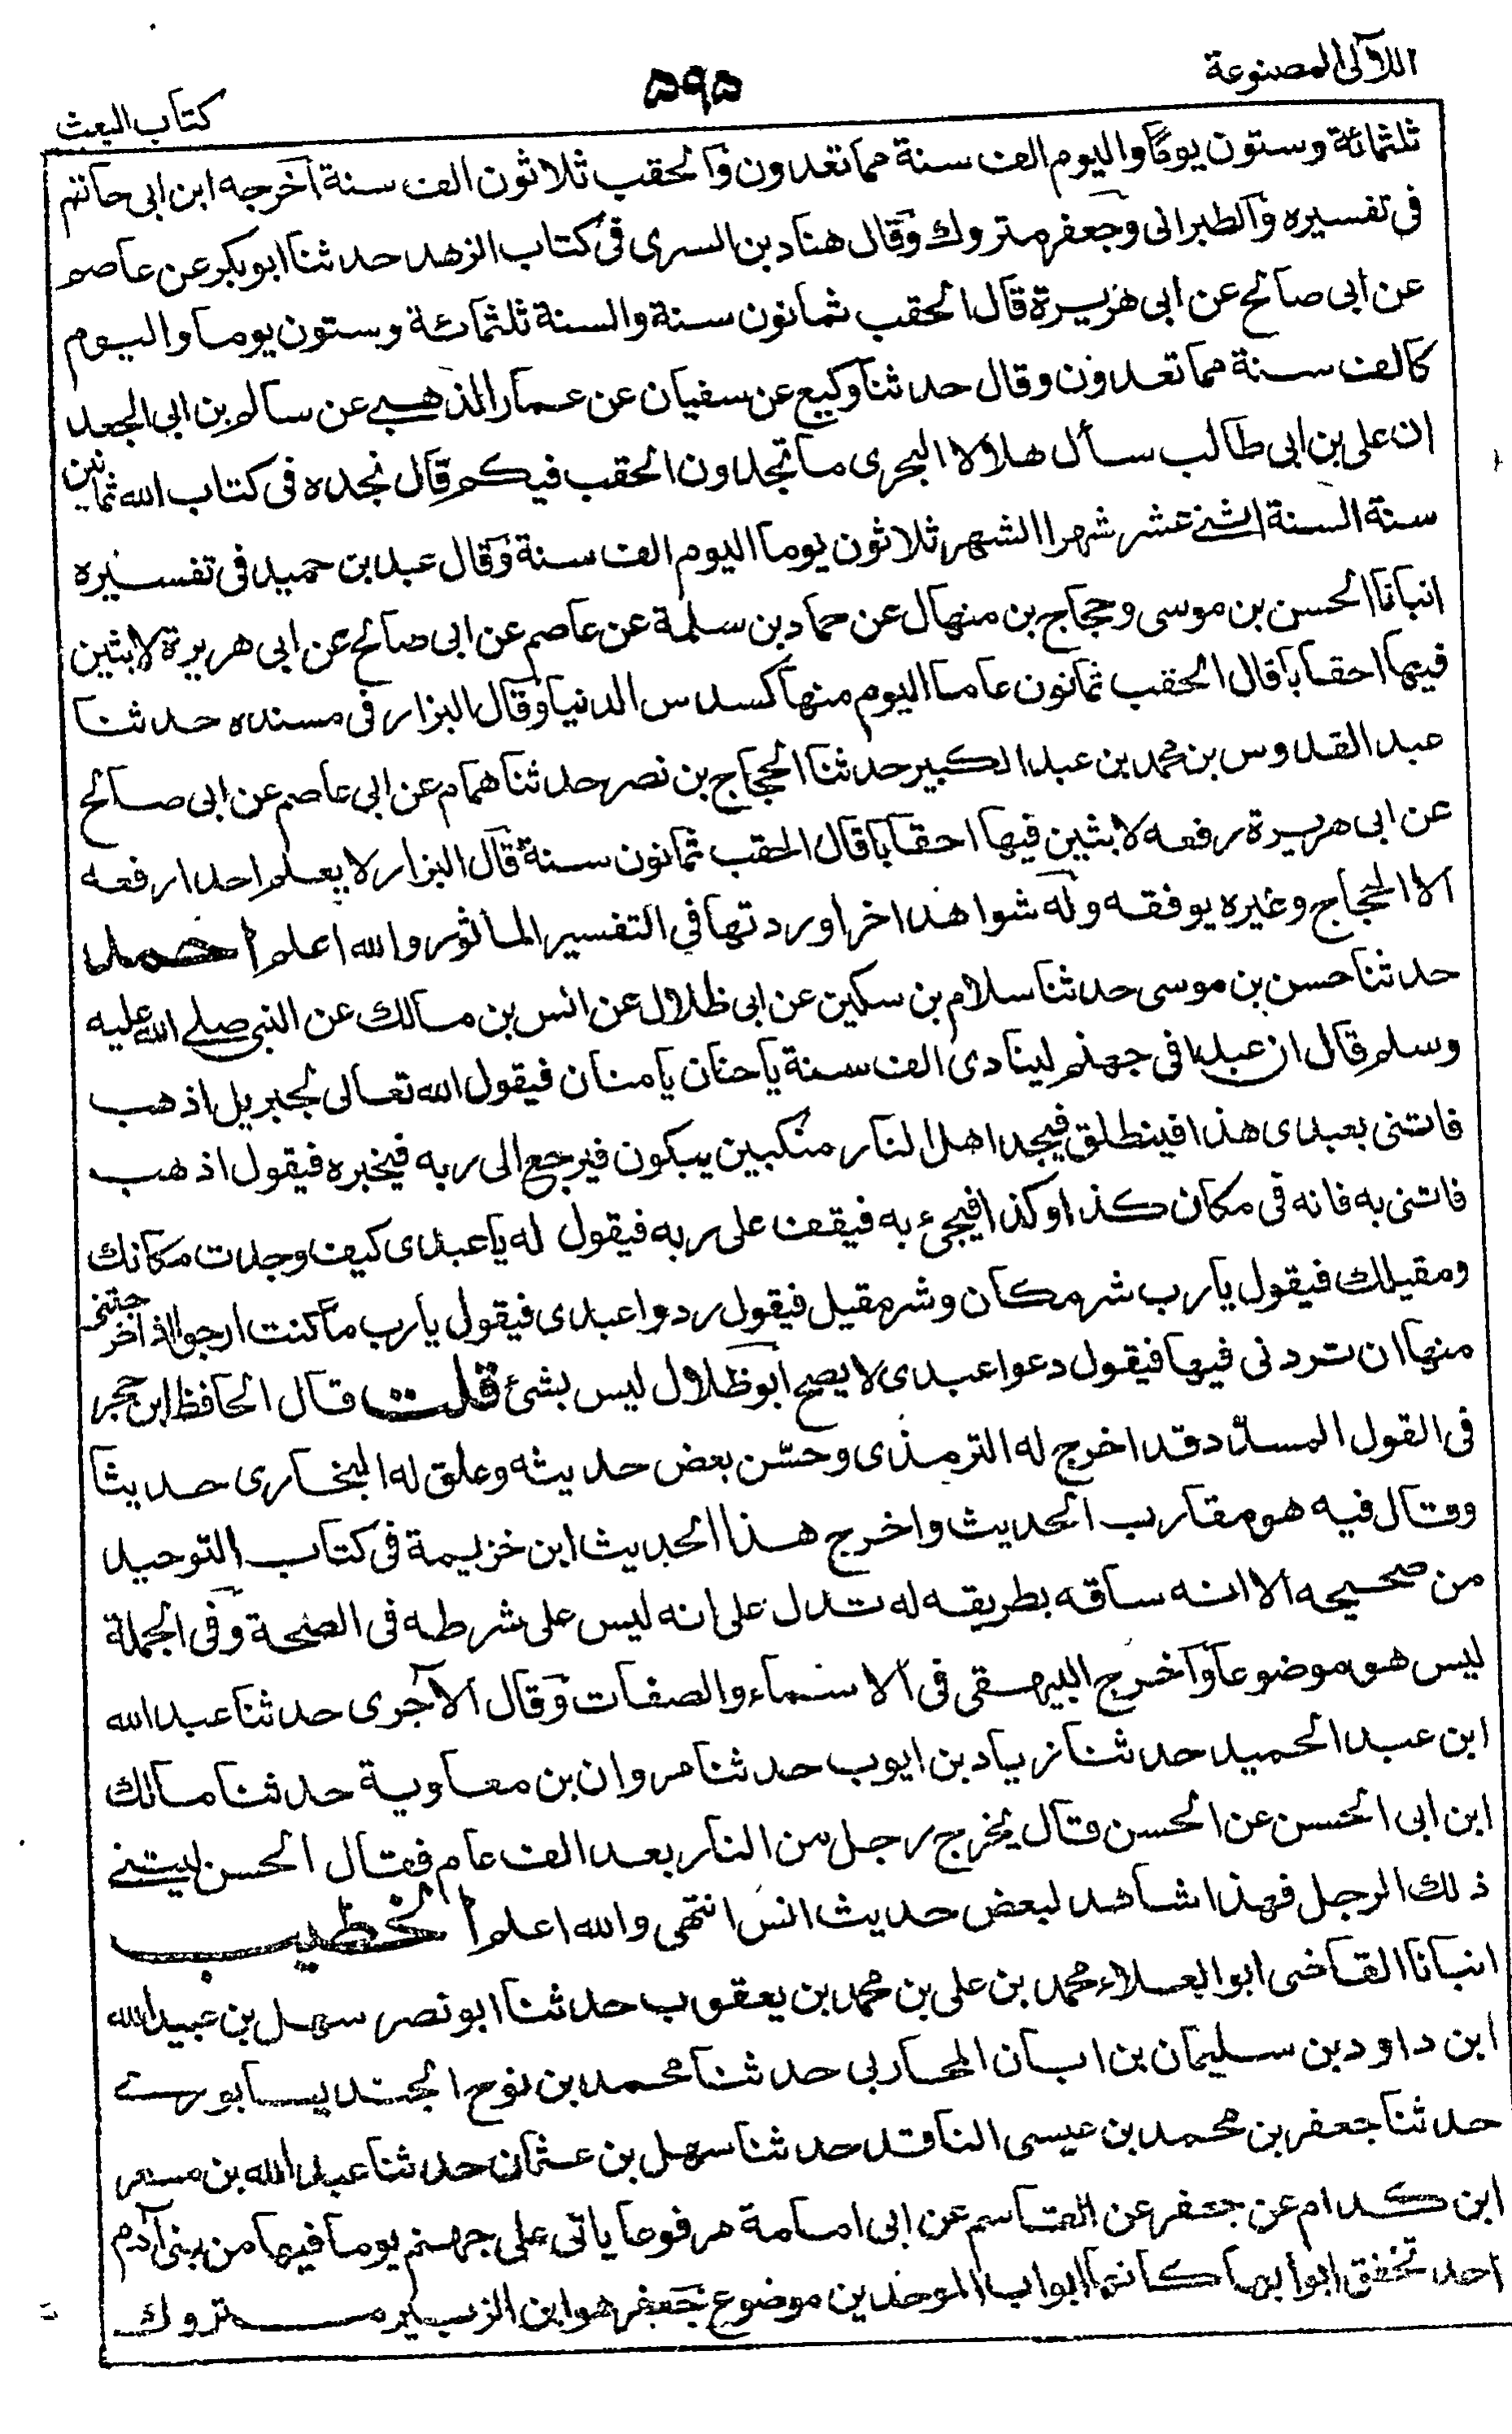 اللآلى المصنوعة
۵۹۵
كتاب البعث
ثلثمائة وستون يوما واليوم الف سنة مما تعدون والحقب ثلاثون الف سنة اخرجه ابن ابى حاتم
فى تفسيره والطبرانى وجعفر متروك وقال هناد بن السرى فى كتاب الزهد حدثنا ابوبكر عن عاصم
عن ابى صالح عن ابى هريرة قال الحقب ثمانون سنة والسنة ثلثمائة وستون يوما واليوم
كالف سنة مما تعدون وقال حدثنا وكيع عن سفيان عن عمار الذهبى عن سالم بن ابى الجعد
ان على بن ابى طالب سأل هلالا الهجرى ما تجدون الحقب فيكم قال نجده فى كتاب الله ثمانين
سنة السنة اثنى عشر شهرا الشهر ثلاثون يوما اليوم الف سنة وقال عبد بن حميد فى تفسيره
انبانا الحسن بن موسى وحجاج بن منهال عن حماد بن سلمة عن عاصم عن ابى صالح عن ابى هريرة لابثين
فيها احقابا قال الحقب ثمانون عاما اليوم منها كسدس الدنيا وقال البزار فى مسنده حدثنا
عبد القدوس بن محمد بن عبد الكبير حدثنا الحجاج بن نصر حدثنا همام عن ابى عاصم عن ابى صالح
عن ابى هريرة رفعه لابثين فيها احقابا قال الحقب ثمانون سنة قال البزار لا يعلم احدا رفعه
الا الحجاج وغيره يوفقه وله شواهد اخر اوردتها فى التفسير الماثور والله اعلم احمد
حدثنا حسن بن موسى حدثنا سلام بن سكين عن ابى ظلال عن انس بن مالك عن النبى صلى الله عليه
وسلم قال ان عبدا فى جهنم لينادى الف سنة يا حنان يا منان فيقول الله تعالى لجبريل اذهب
فاتنى بعبدى هذا فينطلق فيجد اهل النار منكبين يبكون فيرجع الى ربه فيخبره فيقول اذهب
فاتنى به فانه فى مكان كذا وكذا فيجئ به فيقف على ربه فيقول له يا عبدى كيف وجدت مكانك
ومقيلك فيقول يا رب شر مكان وشر مقيل فيقول ردوا عبدى فيقول يا رب ما كنت ارجوا اذ اخرجتنى
منها ان تردنى فيها فيقول دعوا عبدى لا يصح ابو ظلال ليس بشئ قلت قال الحافظ ابن حجر
فى القول المسدد قد اخرج له الترمذى وحسّن بعض حديثه وعلق له البخارى حديثا
وقال فيه هو مقارب الحديث واخرج هذا الحديث ابن خزيمة فى كتاب التوحيد
من صحيحه الا انه ساقه بطريقه له تدل على انه ليس على شرطه فى الصحة وفى الجملة
ليس هو موضوعا واخرج البيهقى فى الاسماء والصفات وقال الآجرى حدثنا عبد الله
ابن عبد الحميد حدثنا زياد بن ايوب حدثنا مروان بن معاوية حدثنا مالك
ابن ابى الحسن عن الحسن قال يخرج رجل من النار بعد الف عام فقال الحسن ليتنى
ذلك الرجل فهذا شاهد لبعض حديث انس انتهى والله اعلم الخطيب
انبانا القاضى ابو العلاء محمد بن على بن محمد بن يعقوب حدثنا ابو نصر سهل بن عبيد الله
ابن داود بن سليمان بن ابان المحاربى حدثنا محمد بن نوح الجنديسابورى
حدثنا جعفر بن محمد بن عيسى الناقد حدثنا سهل بن عثمان حدثنا عبد الله بن مسعر
ابن كدام عن جعفر عن القاسم عن ابى امامة مرفوعا ياتى على جهنم يوما فيها من بنى آدم
احد تخفق ابوابها كانها ابواب الموحدين موضوع جعفر هو ابن الزبير متروك